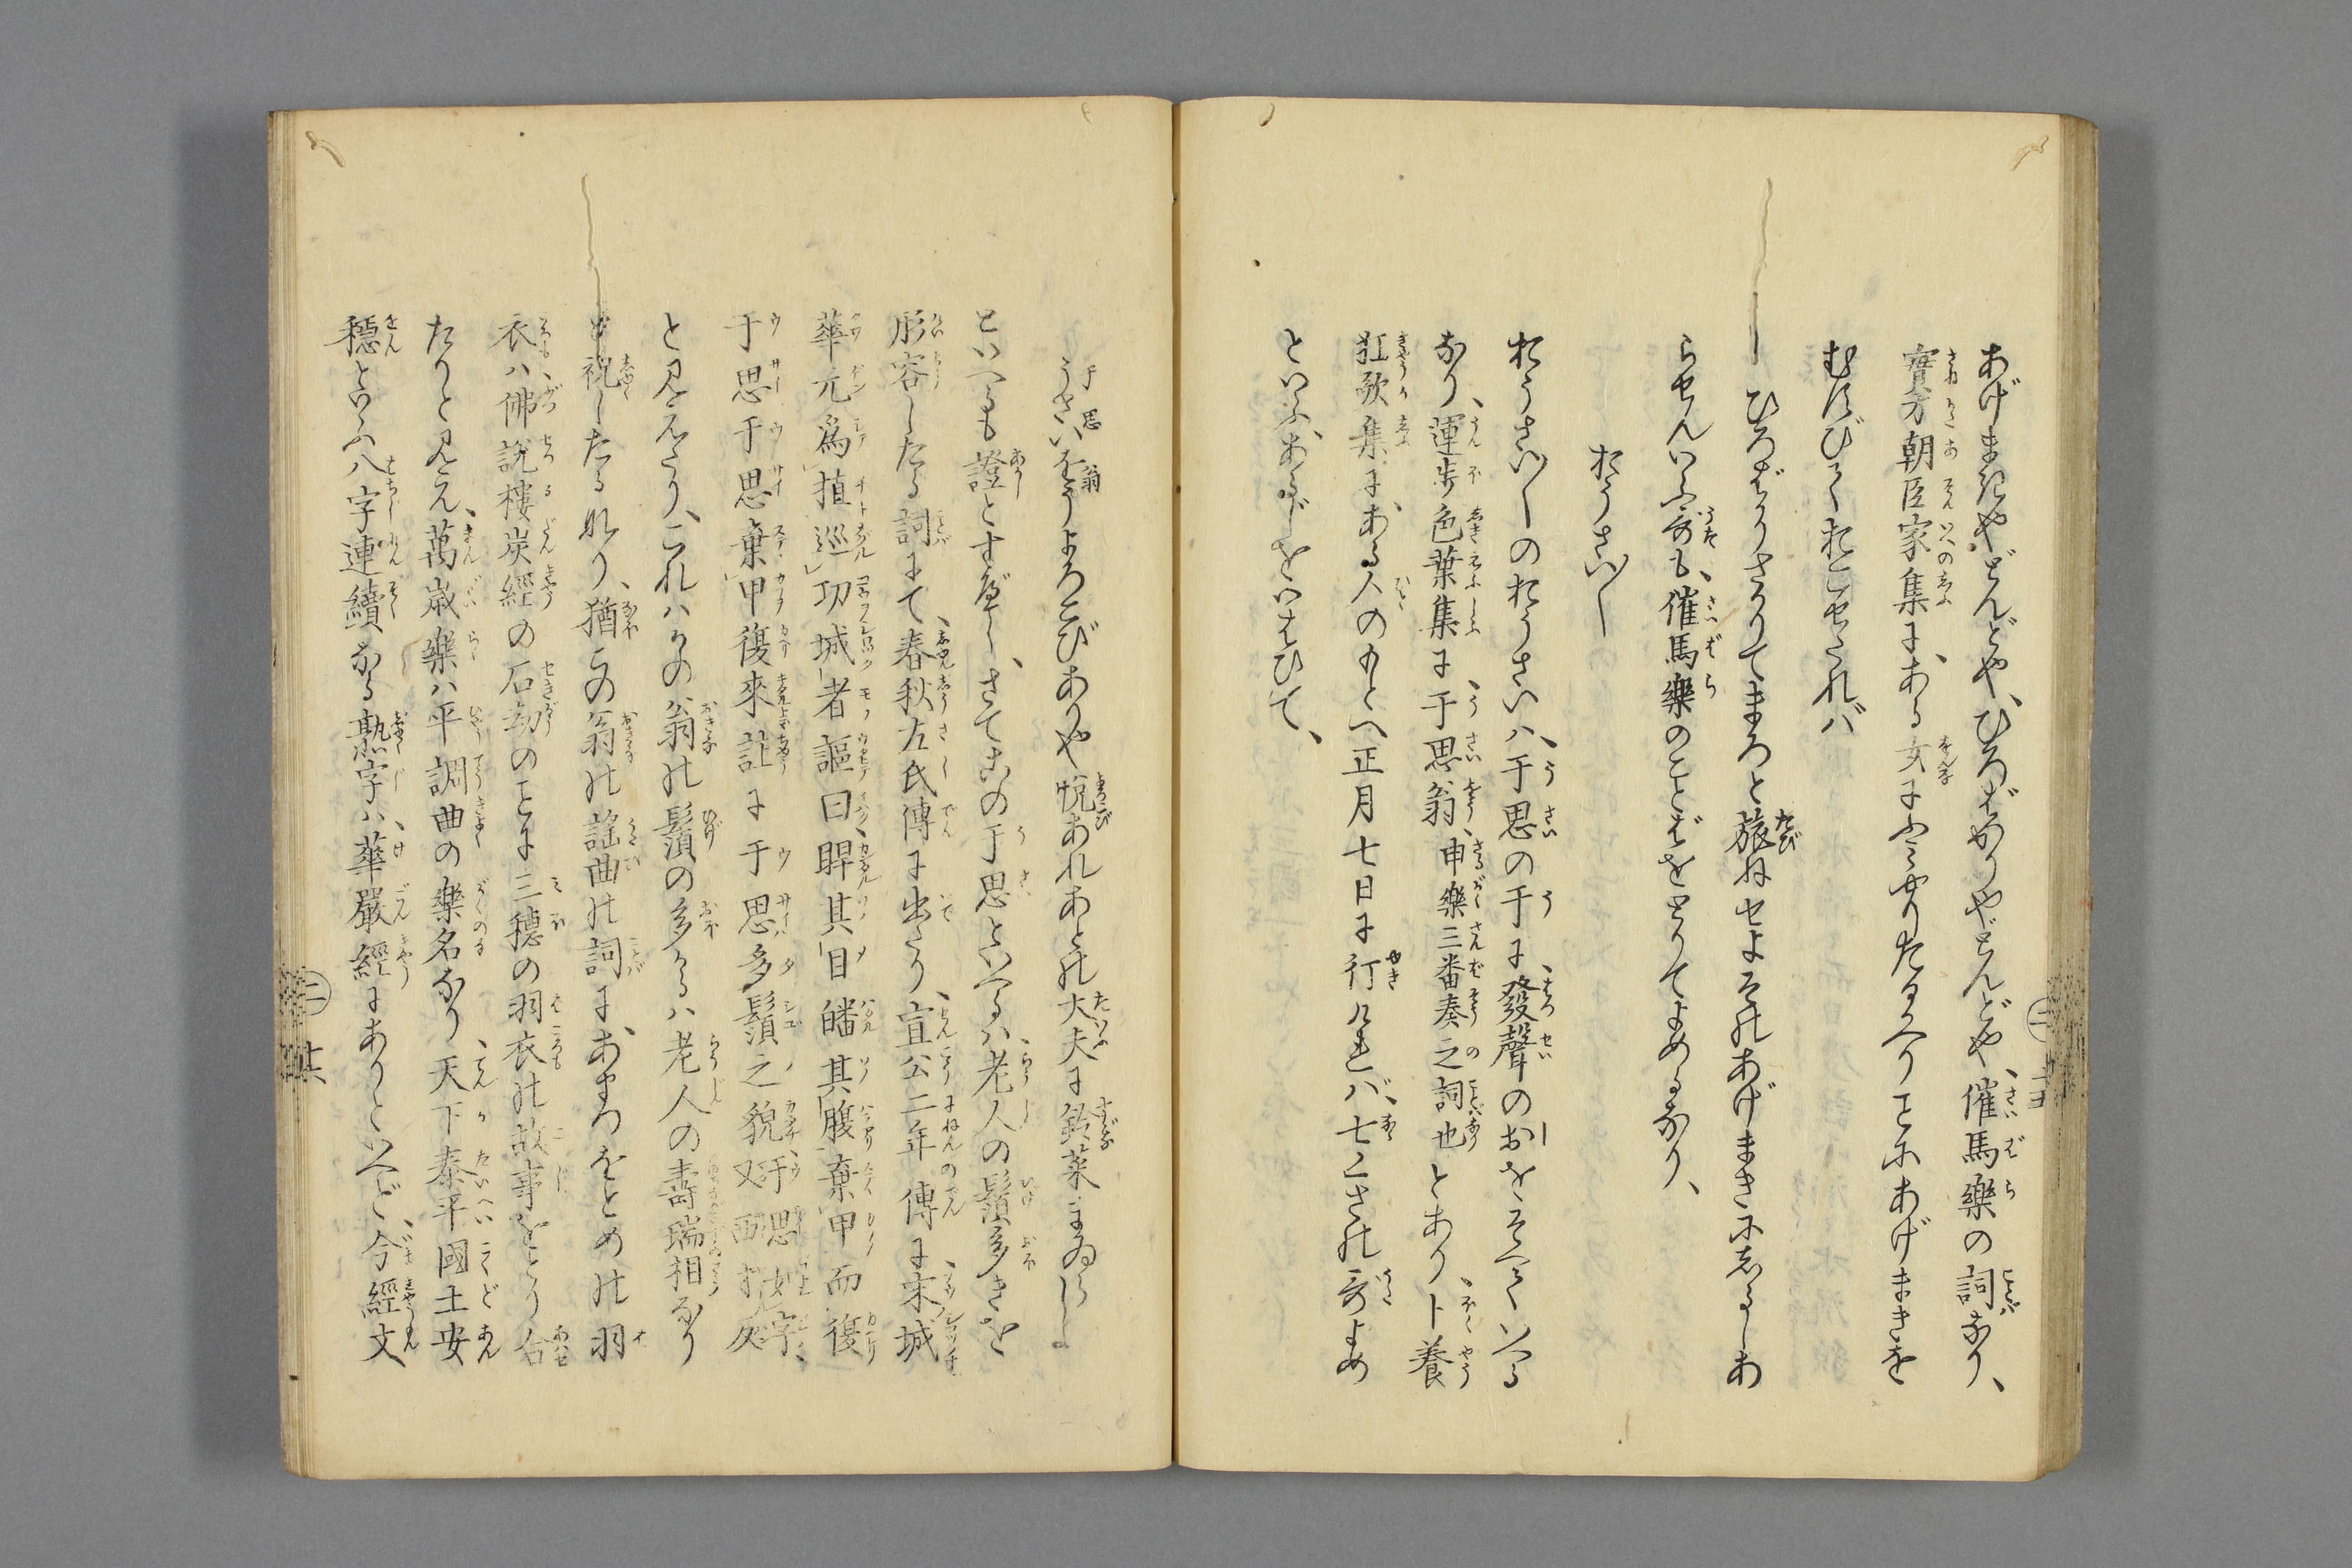 あげまきやどんどや、ひろばかりやどんどや、催馬樂の詞なり、
實方朝臣家集に、ある女にふみやりたるかへりことにあげまきを
むすびておこせたれバ
ひろばかりさかりてまろと旅ねせよそのあげまきにしるしあ
らせんいふ哥も、催馬樂のことばをとりてよめるなり、
おうさい〳〵
おうさい〳〵のおうさいハ、于思の于に、發聲のおをそへていへる
なり、運歩色葉集に于思翁、申樂三番奏之詞也とあり、卜養
狂歌集に、ある人のもとへ正月七日に行けれバ、七くさの哥よめ
といふ、あるじをいはひて、
うさい翁よろこびありや悦あれあとの大夫に鈴菜まゐらしよ
といへるも證とすべし、さてこの于思といへるハ、老人の鬚多きを
形容したる詞にて、春秋左氏傳に出たり、宣公二年傳に、宋城
華元爲植巡功城者謳曰睅其目皤其腹棄甲而復
于思于思棄甲復來註に于思多鬚之貌
と見えたり、これハかの翁の鬚の多かるハ老人の壽瑞相なり
と祝したるなり、猶この翁の謠曲の詞に、あまつをとめの羽
衣ハ、佛說樓炭經の石劫のことに三穗の羽衣の故事をとり合
たりと見え、萬歳樂ハ平調曲の樂名なり、天下泰平國土安
穩といふハ八字連續なる熟字ハ、華嚴經にありといへど、今經文